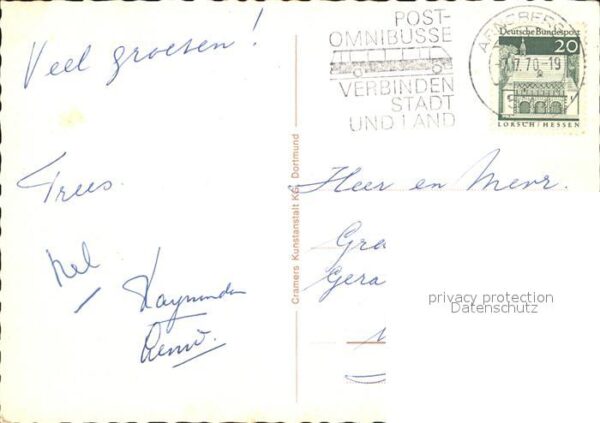 Veel groeten!
Trees.
Nel
Raymonda
René.
Cramers Kunstanstalt KG, Dortmund
POST-
OMNIBUSSE
VERBINDEN
STADT
UND LAND
ARNSBERG
70-19
Deutsche Bundespost
20
LORSCH/HESSEN
Heer en Mevr.
Gra
Gera
privacy protection
Datenschutz